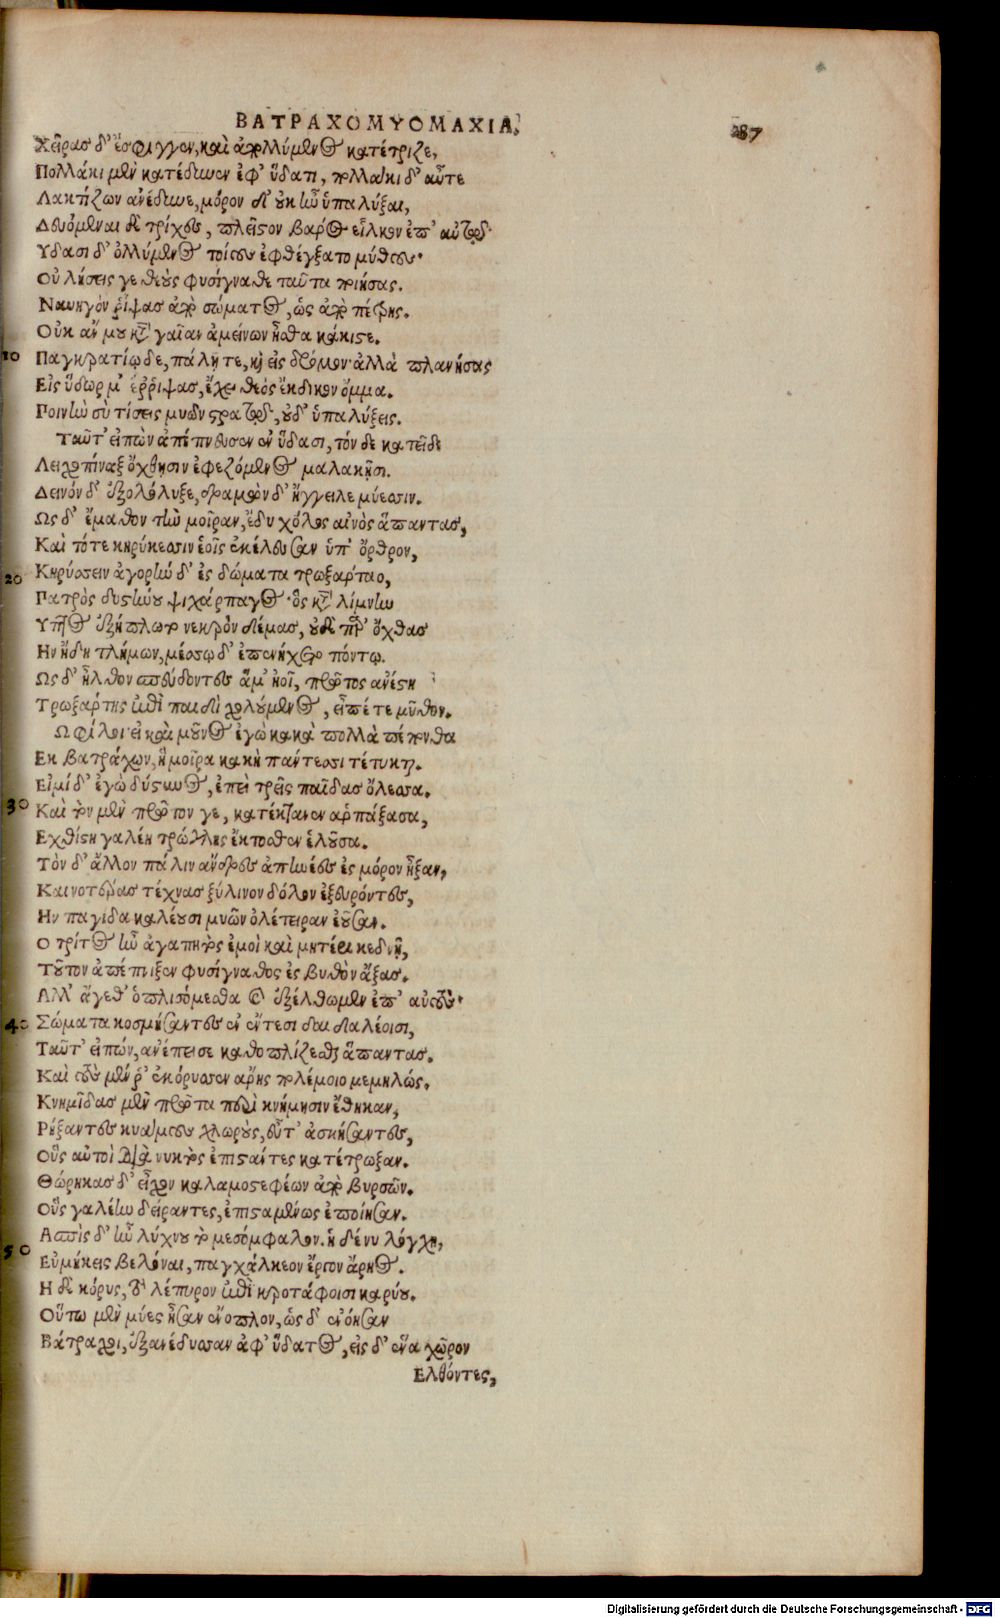 ΒΑΤΡΑΧΟΜΥΟΜΑΧΙΑ. 87
Χεῖρας δ' ἔσφιγγεν, καὶ ἀπολλύμενος κατέτριζε,
Πολλάκι μὲν κατέδυνεν ἐφ' ὕδατι, πολλάκι δ' αὖτε
Λακτίζων ἀνέδυνε, μόρον δ' οὐκ ἦν ὑπαλύξαι,
Δευόμεναι δὲ τρίχες, πλεῖστον βάρος εἷλκον ἐπ' αὐτῷ·
Υδασι δ' ὀλλύμενος τοίους ἐφθέγξατο μύθους·
Οὐ λήσεις γε θεοὺς φυσίγναθε ταῦτα ποιήσας.
Ναυηγὸν ῥίψας ἀπὸ σώματος, ὡς ἀπὸ πέτρης.
Οὐκ ἄν μου κατὰ γαῖαν ἀμείνων ἦσθα κάκιστε.
10 Παγκρατίῳ δε, πάλῃ τε, καὶ εἰς δρόμον· ἀλλὰ πλανήσας
Εἰς ὕδωρ μ' ἔρριψας, ἔχει θεὸς ἔκδικον ὄμμα.
Ποινὴν σὺ τίσεις μυῶν στρατῷ, οὐδ' ὑπαλύξεις.
Ταῦτ' εἰπὼν ἀπέπνευσεν ἐν ὕδασι, τόν δε κατεῖδε
Λειχοπίναξ ὄχθῃσιν ἐφεζόμενος μαλακῇσι.
Δεινόν δ' ἐξολόλυξε, δραμὼν δ' ἤγγειλε μύεσσιν.
Ως δ' ἔμαθον τὴν μοῖραν, ἔδυ χόλος αἰνὸς ἅπαντας,
Καὶ τότε κηρύκεσσιν ἑοῖς ἐκέλευσαν ὑπ' ὄρθρον,
20 Κηρύσσειν ἀγορὴν δ' ἐς δώματα τρωξάρταο,
Πατρὸς δυστήνου ψιχάρπαγος· ὃς κατὰ λίμνην
Υπτιος ἐξήπλωτο νεκρὸν δέμας, οὐδὲ παρ' ὄχθας
Ην ἤδη τλήμων, μέσσῳ δ' ἐπενήχετο πόντῳ.
Ως δ' ἦλθον σπεύδοντες ἅμ' ἠοῖ, πρῶτος ἀνέστη
Τρωξάρτης ἐπὶ παιδὶ χολούμενος, εἶπέ τε μῦθον.
Ω φίλοι· εἰ καὶ μοῦνος ἐγὼ κακὰ πολλὰ πέπονθα
Εκ βατράχων, ἡ μοῖρα κακὴ πάντεσσι τέτυκται.
Εἰμί δ' ἐγὼ δύστηνος, ἐπεὶ τρεῖς παῖδας ὄλεσσα.
30 Καὶ τὸν μὲν πρῶτον γε, κατέκτανεν ἁρπάξασα,
Εχθίστη γαλέη τρώγλης ἔκτοσθεν ἑλοῦσα.
Τὸν δ' ἄλλον πάλιν ἄνδρες ἀπηνέες ἐς μόρον ἦξαν,
Καινοτέρας τέχνας ξύλινον δόλον ἐξευρόντες,
Ην παγίδα καλέουσι μυῶν ὀλέτειραν ἐοῦσαν.
Ο τρίτος ἦν ἀγαπητὸς ἐμοὶ καὶ μητέρι κεδνῇ,
Τοῦτον ἀπέπνιξεν φυσίγναθος ἐς βυθὸν ἄξας.
Αλλ' ἄγεθ' ὁπλισόμεσθα καὶ ἐξέλθωμεν ἐπ' αὐτούς·
40 Σώματα κοσμήσαντες ἐν ἔντεσι δαιδαλέοισι,
Ταῦτ' εἰπών, ἀνέπεισε καθοπλίζεσθαι ἅπαντας.
Καὶ τοὺς μέν ῥ' ἐκόρυσσεν ἄρης πολέμοιο μεμηλώς.
Κνημῖδας μὲν πρῶτα περὶ κνήμησιν ἔθηκαν,
Ρήξαντες κυάμους χλωρούς, εὖτ' ἀσκήσαντες,
Οὓς αὐτοὶ διὰ νυκτὸς ἐπιστάντες κατέτρωξαν.
Θώρηκας δ' εἶχον καλαμοστεφέων ἀπὸ βυρσῶν.
Οὓς γαλέην δείραντες, ἐπισταμένως ἐποίησαν.
Ασπὶς δ' ἦν λύχνου τὸ μεσόμφαλον. ἡ δέ νυ λόγχη,
50 Εὐμήκεις βελόναι, παγχάλκεον ἔργον ἄρηος.
Η δὲ κόρυς, τὸ λέπυρον ἐπὶ κροτάφοισι καρύου.
Οὕτω μὲν μύες ἦσαν ἔνοπλον, ὡς δ' ἐνόησαν
Βάτραχοι, ἐξανέδυσαν ἀφ' ὕδατος, εἰς δ' ἕνα χῶρον
Ελθόντες,
Digitalisierung gefördert durch die Deutsche Forschungsgemeinschaft - DFG